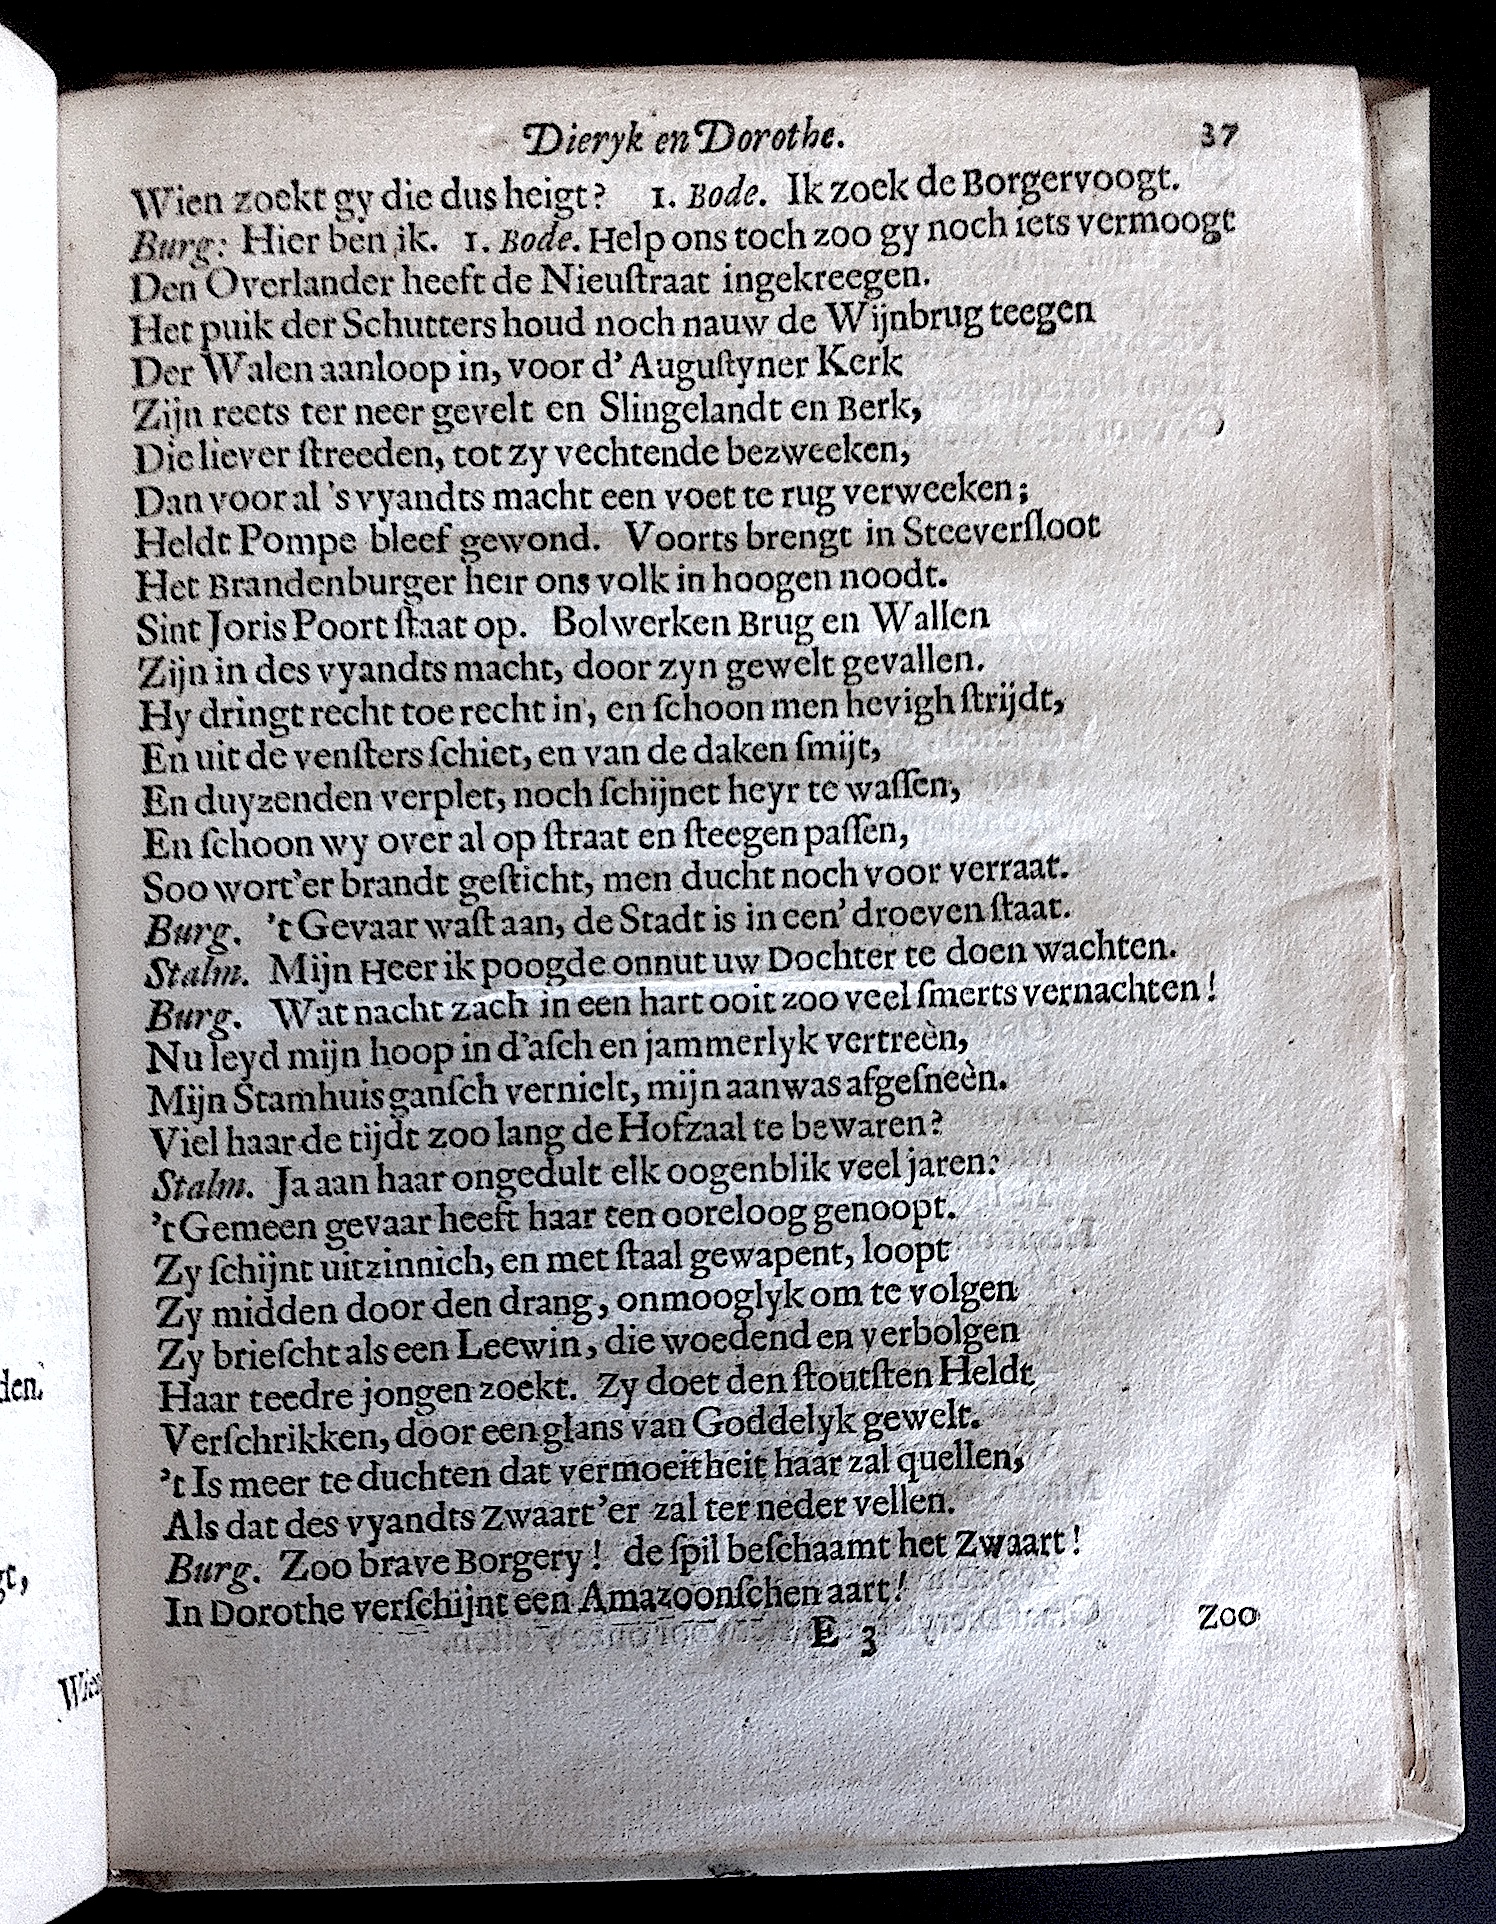 Dieryk en Dorothe. 37
Wien zoekt gy die dus heigt? 1. Bode. Ik zoek de Borgervoogt.
Burg: Hier ben ik. 1. Bode. Help ons toch zoo gy noch iets vermoogt
Den Overlander heeft de Nieuſtraat ingekreegen.
Het puik der Schutters houd noch nauw de Wijnbrug teegen
Der Walen aanloop in, voor d' Auguſtyner Kerk
Zijn reets ter neer gevelt en Slingelandt en Berk,
Die liever ſtreeden, tot zy vechtende bezweeken,
Dan voor al 's vyandts macht een voet te rug verweeken;
Heldt Pompe bleef gewond. Voorts brengt in Steeverſloot
Het Brandenburger heir ons volk in hoogen noodt.
Sint Joris Poort ſtaat op. Bolwerken Brug en Wallen
Zijn in des vyandts macht, door zyn gewelt gevallen.
Hy dringt recht toe recht in, en ſchoon men hevigh ſtrijdt,
En uit de venſters ſchiet, en van de daken ſmijt,
En duyzenden verplet, noch ſchijnet heyr te waſſen,
En ſchoon wy over al op ſtraat en ſteegen paſſen,
Soo wort'er brandt geſticht, men ducht noch voor verraat.
Burg. 't Gevaar waſt aan, de Stadt is in een' droeven ſtaat.
Stalm. Mijn Heer ik poogde onnut uw Dochter te doen wachten.
Burg. Wat nacht zach in een hart ooit zoo veel ſmerts vernachten!
Nu leyd mijn hoop in d'aſch en jammerlyk vertreèn,
Mijn Stamhuis ganſch vernielt, mijn aanwas afgeſneèn.
Viel haar de tijdt zoo lang de Hofzaal te bewaren?
Stalm. Ja aan haar ongedult elk oogenblik veel jaren:
't Gemeen gevaar heeft haar ten ooreloog genoopt.
Zy ſchijnt uitzinnich, en met ſtaal gewapent, loopt
Zy midden door den drang, onmooglyk om te volgen
Zy brieſcht als een Leewin, die woedend en verbolgen
Haar teedre jongen zoekt. Zy doet den ſtoutſten Heldt
Verſchrikken, door een glans van Goddelyk gewelt.
't Is meer te duchten dat vermoeitheit haar zal quellen,
Als dat des vyandts Zwaart'er zal ter neder vellen.
Burg. Zoo brave Borgery! de ſpil beſchaamt het Zwaart!
In Dorothe verſchijnt een Amazoonſchen aart!
E 3 Zoo
den.
gt,
Wien